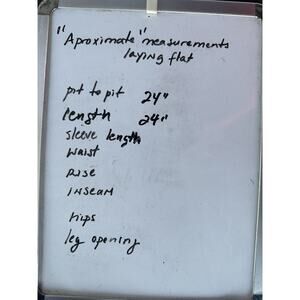 "Aproximate" measurements
laying flat
pit to pit 24"
length 24"
sleeve length
waist
rise
inseam
hips
leg opening